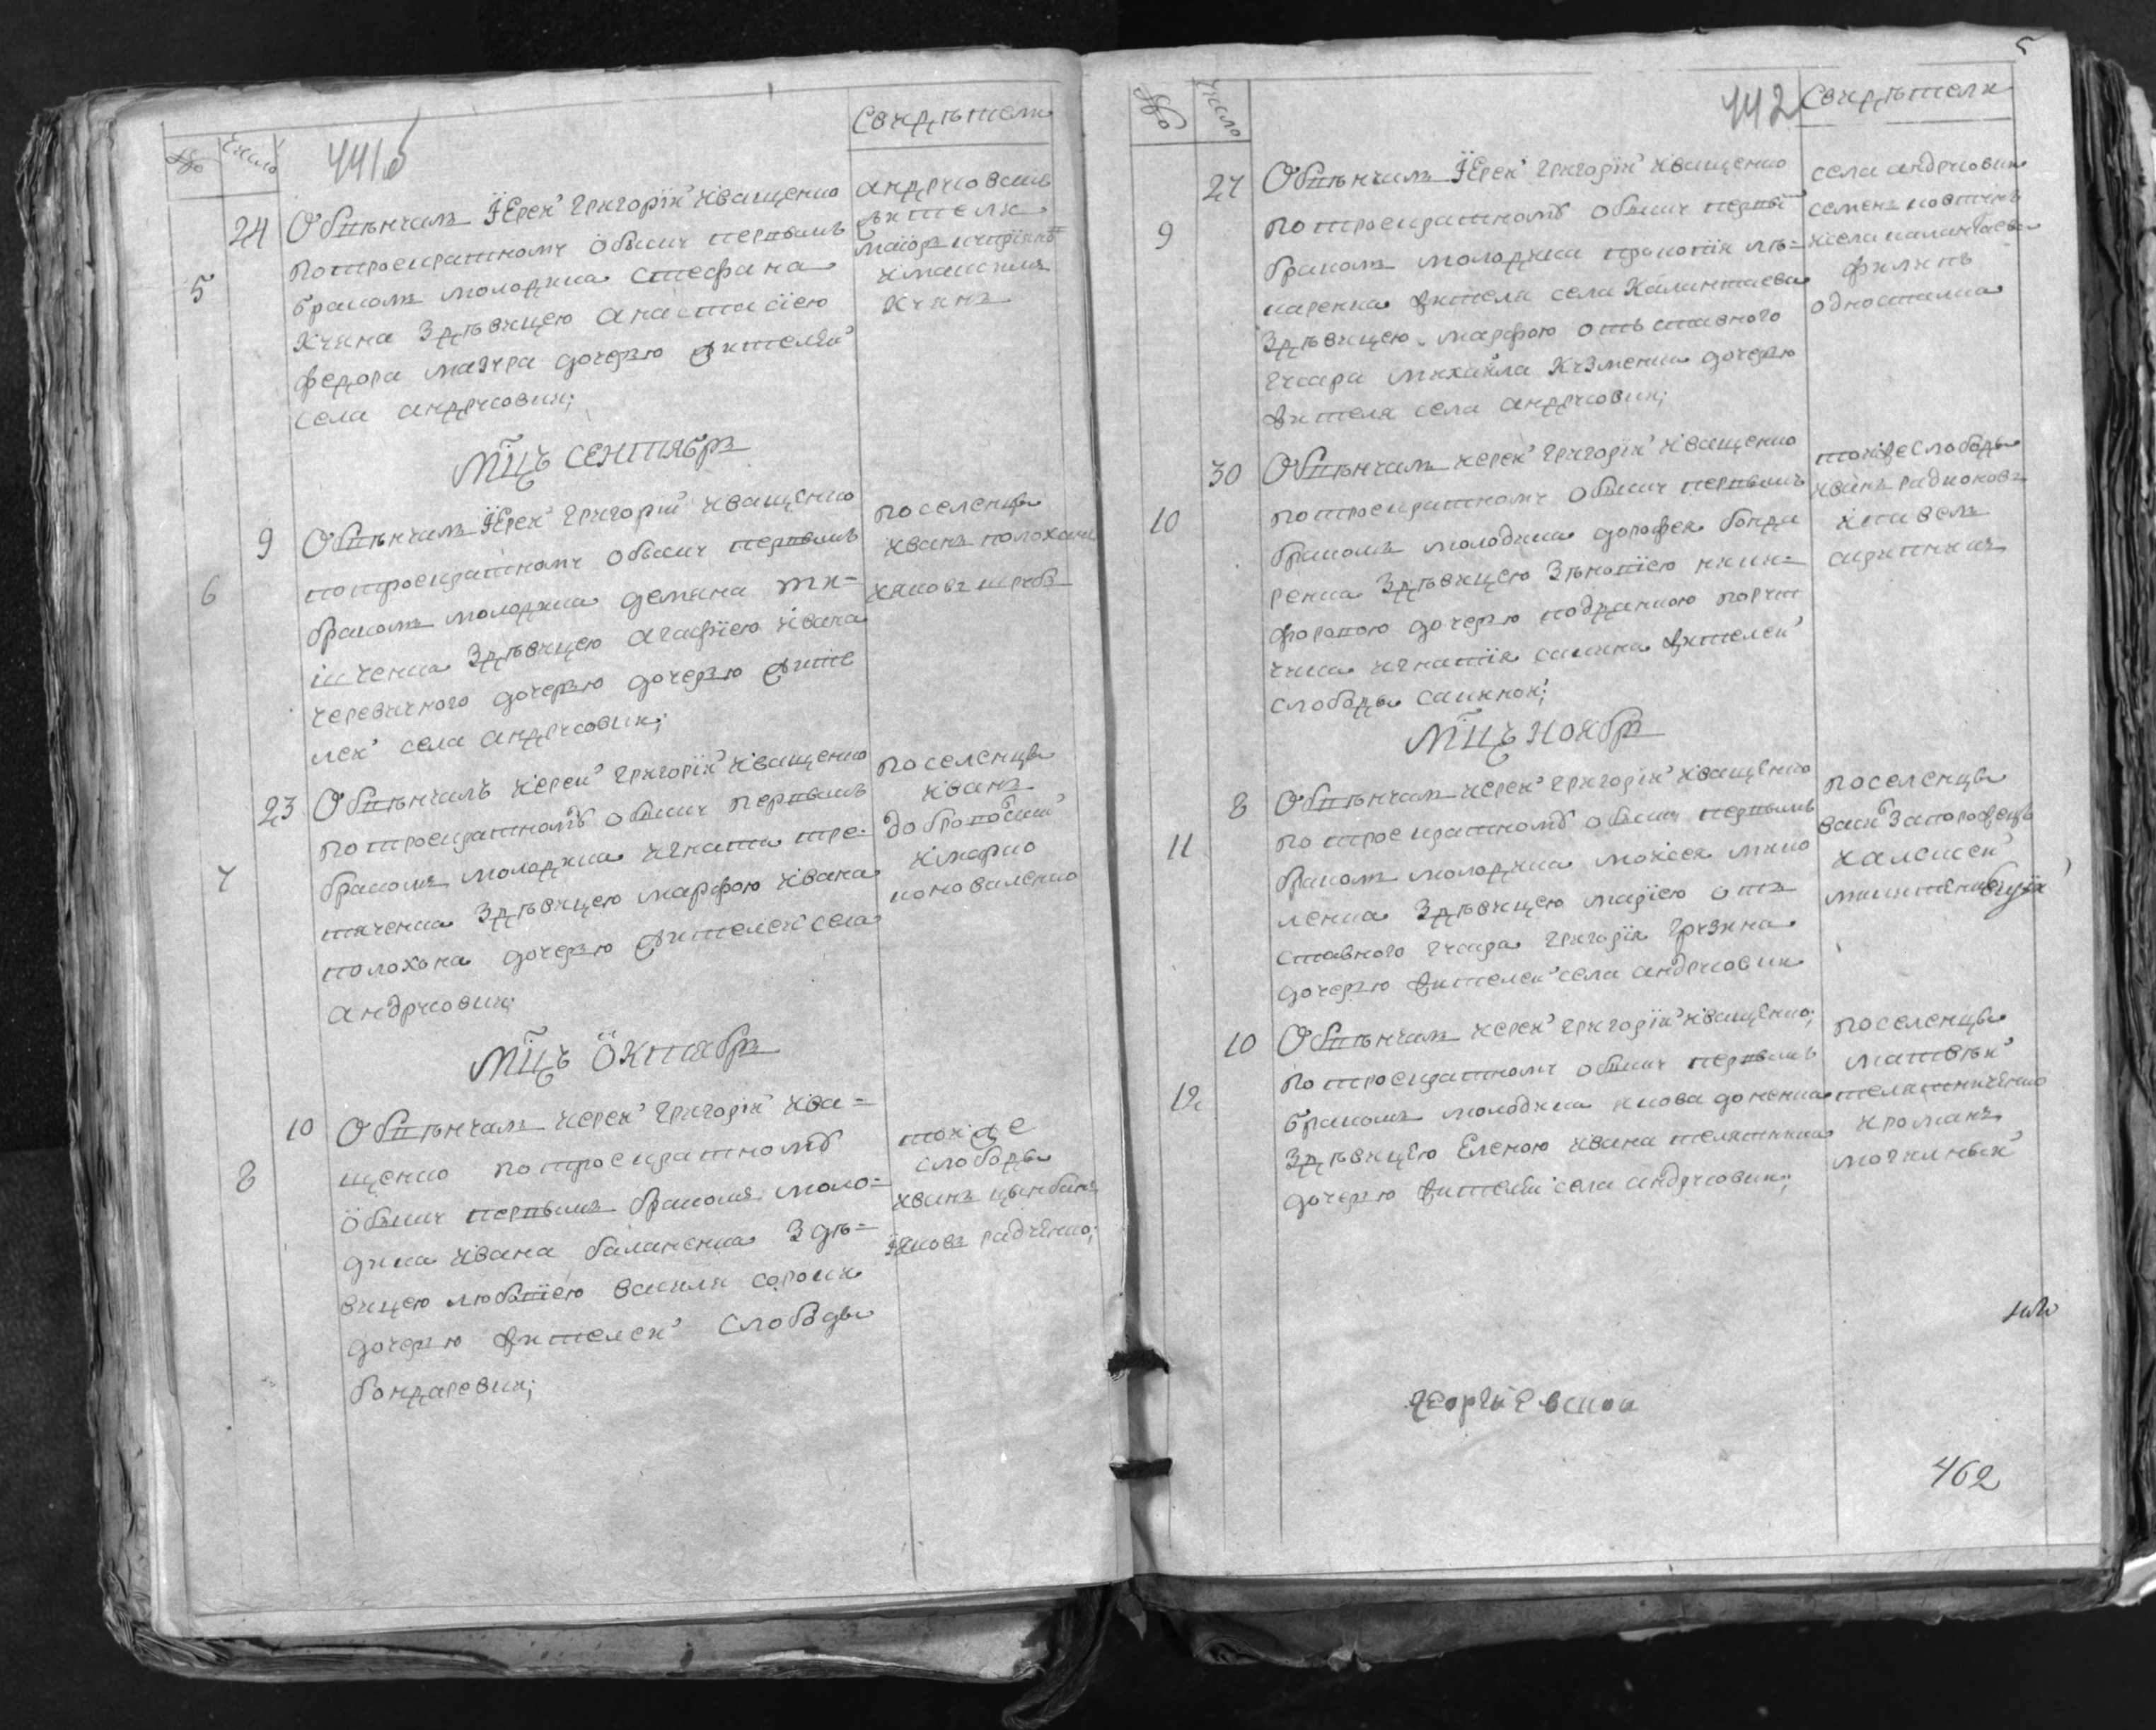 441б
Число
Свидѣтели
5
24
Обвѣнчалъ Іерей Григорій Кващенко
по троекратному обыску первымъ
бракомъ молодика Стефана
Кучина здѣвицею Анастасіею
Федора Мазура дочерью жителей
села андрусовки;
андрусовски
жители
Кучинъ
Мцъ Сентябръ
6
9
Обвѣнчалъ Іерей Григорій Кващенко
по троекратному обыску первымъ
бракомъ молодика демяна ти-
ченка здѣвицею агафіею Ивана
черевичного дочерью дочерью жите
лей села андрусовки;
поселенцы
иванъ полохонъ
7
23
Обвѣнчалъ Иерей Григорій Кващенко
по троекратномъ обыску первымъ
бракомъ молодика игната тре-
тяченка здѣвицею марфою Ивана
полохона дочерью жителей села
андрусовки;
поселенцы
иванъ
коноваленко
Мцъ Октябръ
8
10
Обвѣнчалъ иерей Григорій Ква-
щенко по троекратномъ
обыску первымъ бракомъ моло-
дика ивана баланенка здѣ-
вицею любвіею василя сороки
дочерью жителей слободы
бондаревки;
тоиже
слободы
иванъ цымбалъ
яковъ радченко;
5
Число
442
Свидѣтели
9
27
Обвѣнчалъ Іерей Григорій Кващенко
по троекратномъ обыску первы
бракомъ молодика прокопія
жителя села Калантаева
здѣвицею марфою отъставного
гусара михаила Кузменка дочерью
жителя села андрусовки;
села андрусовки
семенъ
исела калантаева
филипъ
одностал​ка
10
30
Обвѣнчалъ иерей Григорій Кващенко
по троекратному обыску первымъ
бракомъ молодика дорофея бонда
ренка здѣвицею Зѣновіею ники-
форовою дочерью подданною поручи
чика игнатія жителей
слободы
тоиже слободы
иванъ радионовъ
Мцъ Ноябръ
11
8
Обвѣнчалъ иерей Григорій Кващенко
по троекратномъ обыску первымъ
бракомъ молодика мойсея мико
ленка здѣвицею маріею отъ
ставного гусара Григорія Грузина
дочерью жителей села андрусовки
поселенцы
запорожецъ
иалексей
12
10
Обвѣнчалъ иерей Григорій Кващенко;
по троекратному обыску первымъ
бракомъ молодика якова доненка
здѣвицею Еленою ивана телятника
дочерью жителей села андрусовки;
поселенцы
матвѣй
телятниченко
ироманъ
могилный
Георгиевской
462